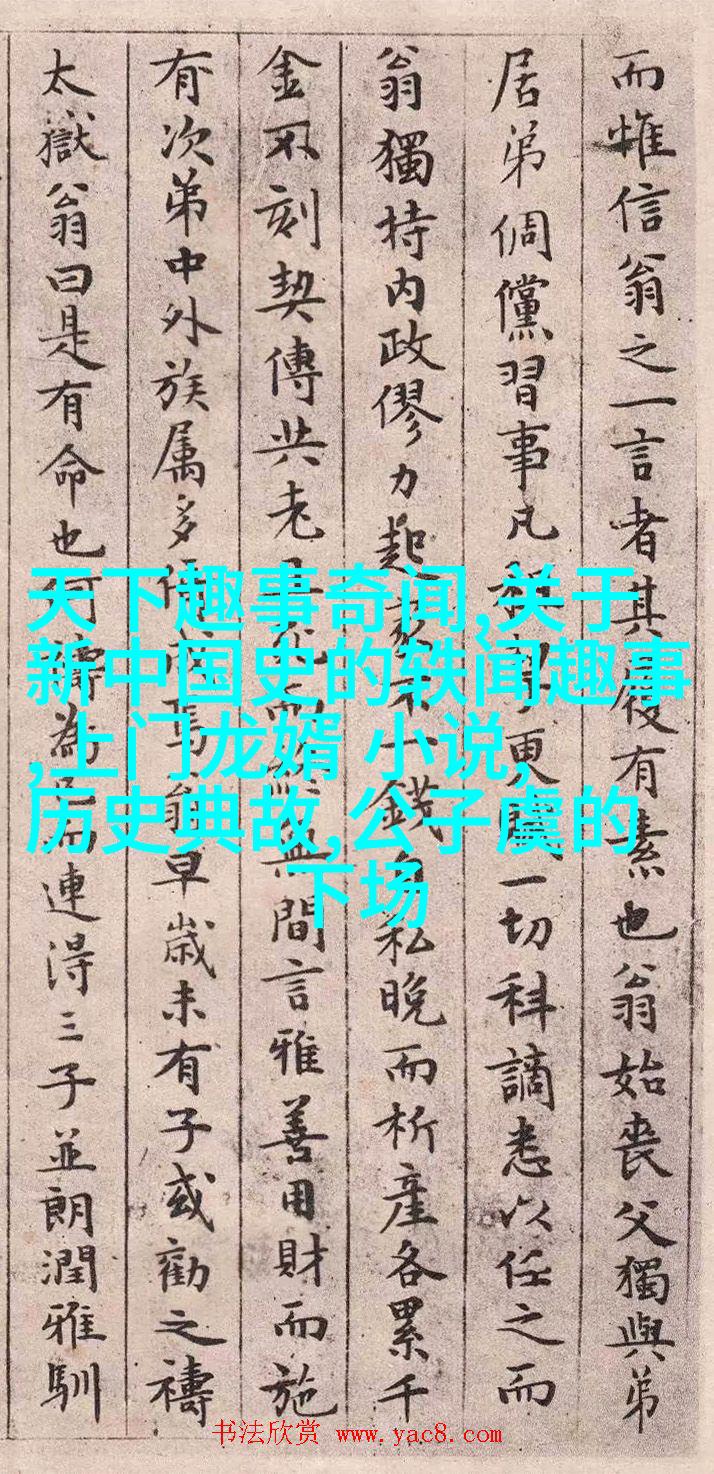 而惟信翁之一言者其履有素也翁始喪父獨與弟
居弟倜儻習事凡更一切科謫悉以任之而
翁獨持内政僇力起家不一錢自私晚而析產各累千
金不刻契傳共老無間言雅善用財而施
有次弟中外族属多翁早歲未有子或勸之禱
太嶽翁曰是有命也何禱為已而連得三子並朗潤雅馴
天下趣事奇闻,关于
新中国史的轶闻趣事
,上门龙婿 小说,
历史典故,公子虞的
下场
书法欣赏 www.yac8.com